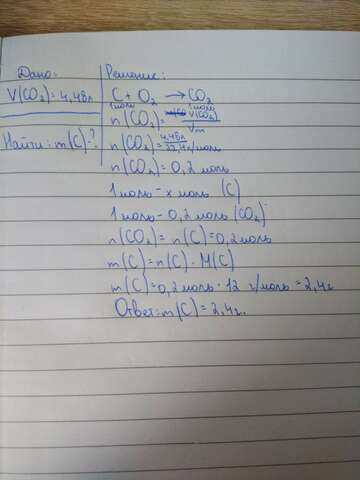 Дано:
V(CO₂) = 4,48л
Найти: m(C)-?
Решение:
C + O₂ → CO₂
1моль 1моль
n(CO₂) = V(CO₂)/Vm
n(CO₂) = 4,48л/22,4л/моль
n(CO₂) = 0,2 моль
1 моль - x моль (C)
1 моль - 0,2 моль (CO₂)
n(CO₂) = n(C) = 0,2 моль
m(C) = n(C) · M(C)
m(C) = 0,2 моль · 12 г/моль = 2,4г
Ответ: m(C) = 2,4г.